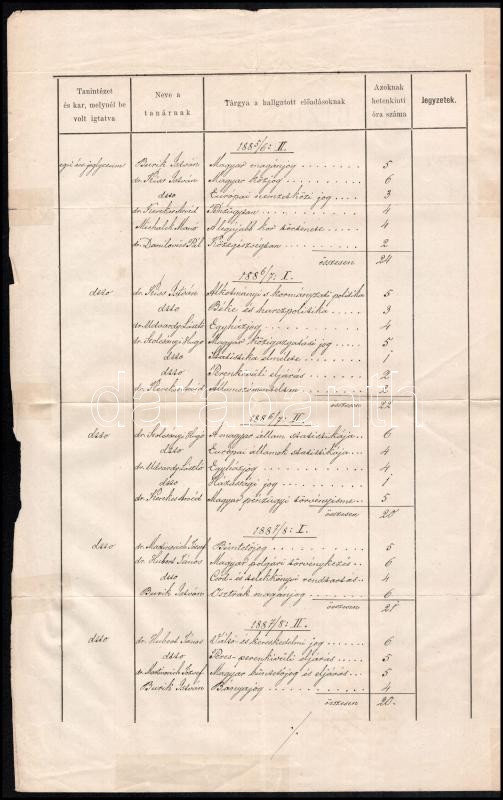 Tanintézet és kar, melynél be volt igtatva | Neve a tanárnak | Tárgya a hallgatott előadásoknak | Azoknak hetenkinti óra száma | Jegyzetek.
1885/6: II.
egri érs. joglyceum | Burik István | Magyar magánjog | 5
dr. Kiss István | Magyar közjog | 6
dsso | Európai nemzetközi jog | 3
dr. Kerekes Arvéd | Pénzügytan | 4
Michalek Manó | A legújabb kor története | 4
dr. Danilovics Pál | Közegészségtan | 2
összesen | 24
1886/7: I.
dsso | dr. Kiss István | Alkotmányi s kormányzati politika | 5
dsso | Béke és harczpolitika | 3
dr. Udvardy László | Egyházjog | 4
dr. Hugó | Magyar közigazgatási jog | 5
dsso | Statistika elmélete | 1
dsso | Perenkívüli eljárás | 2
dr. Kerekes Arvéd | Államszámviteltan | 2
összesen | 22
1886/7: II.
dsso | dr. Hugó | A magyar állam statistikája | 6
dsso | Európai államok statistikája | 4
dr. Udvardy László | Egyházjog | 4
dsso | Házassági jog | 1
dr. Kerekes Arvéd | Magyar pénzügyi törvényisme | 5
összesen | 20
1887/8: I.
dsso | dr. Martinovich József | Büntetőjog | 5
dr. Hubert János | Magyar polgári törvénykezés | 6
dsso | Csőd- és telekkönyvi rendtartás | 4
Burik István | Osztrák magánjog | 6
összesen | 21
1887/8: II.
dsso | dr. Hubert János | Váltó- és kereskedelmi jog | 6
dsso | Peres- perenkívüli eljárás | 5
dr. Martinovich József | Magyar büntetőjog és eljárás | 5
Burik István | Bányajog | 4
összesen | 20.
./.
darabanth